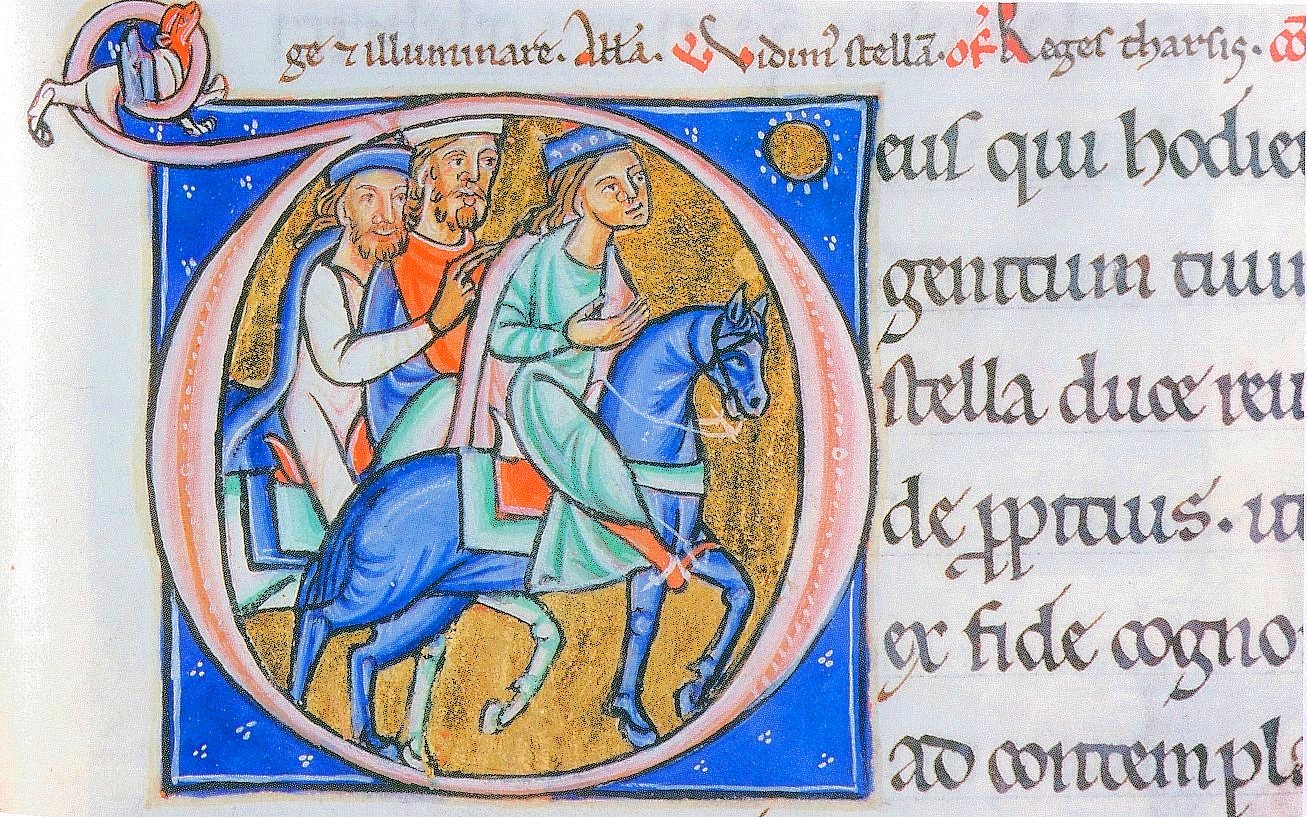 ge ⁊ illuminare. All'a. Vidim' stellā. of̄ Reges tharsis. cō
Deus qui hodier
gentium tuu
stella duce reu
de ꝓpitius. ut
ex fide cogno
ad contempla